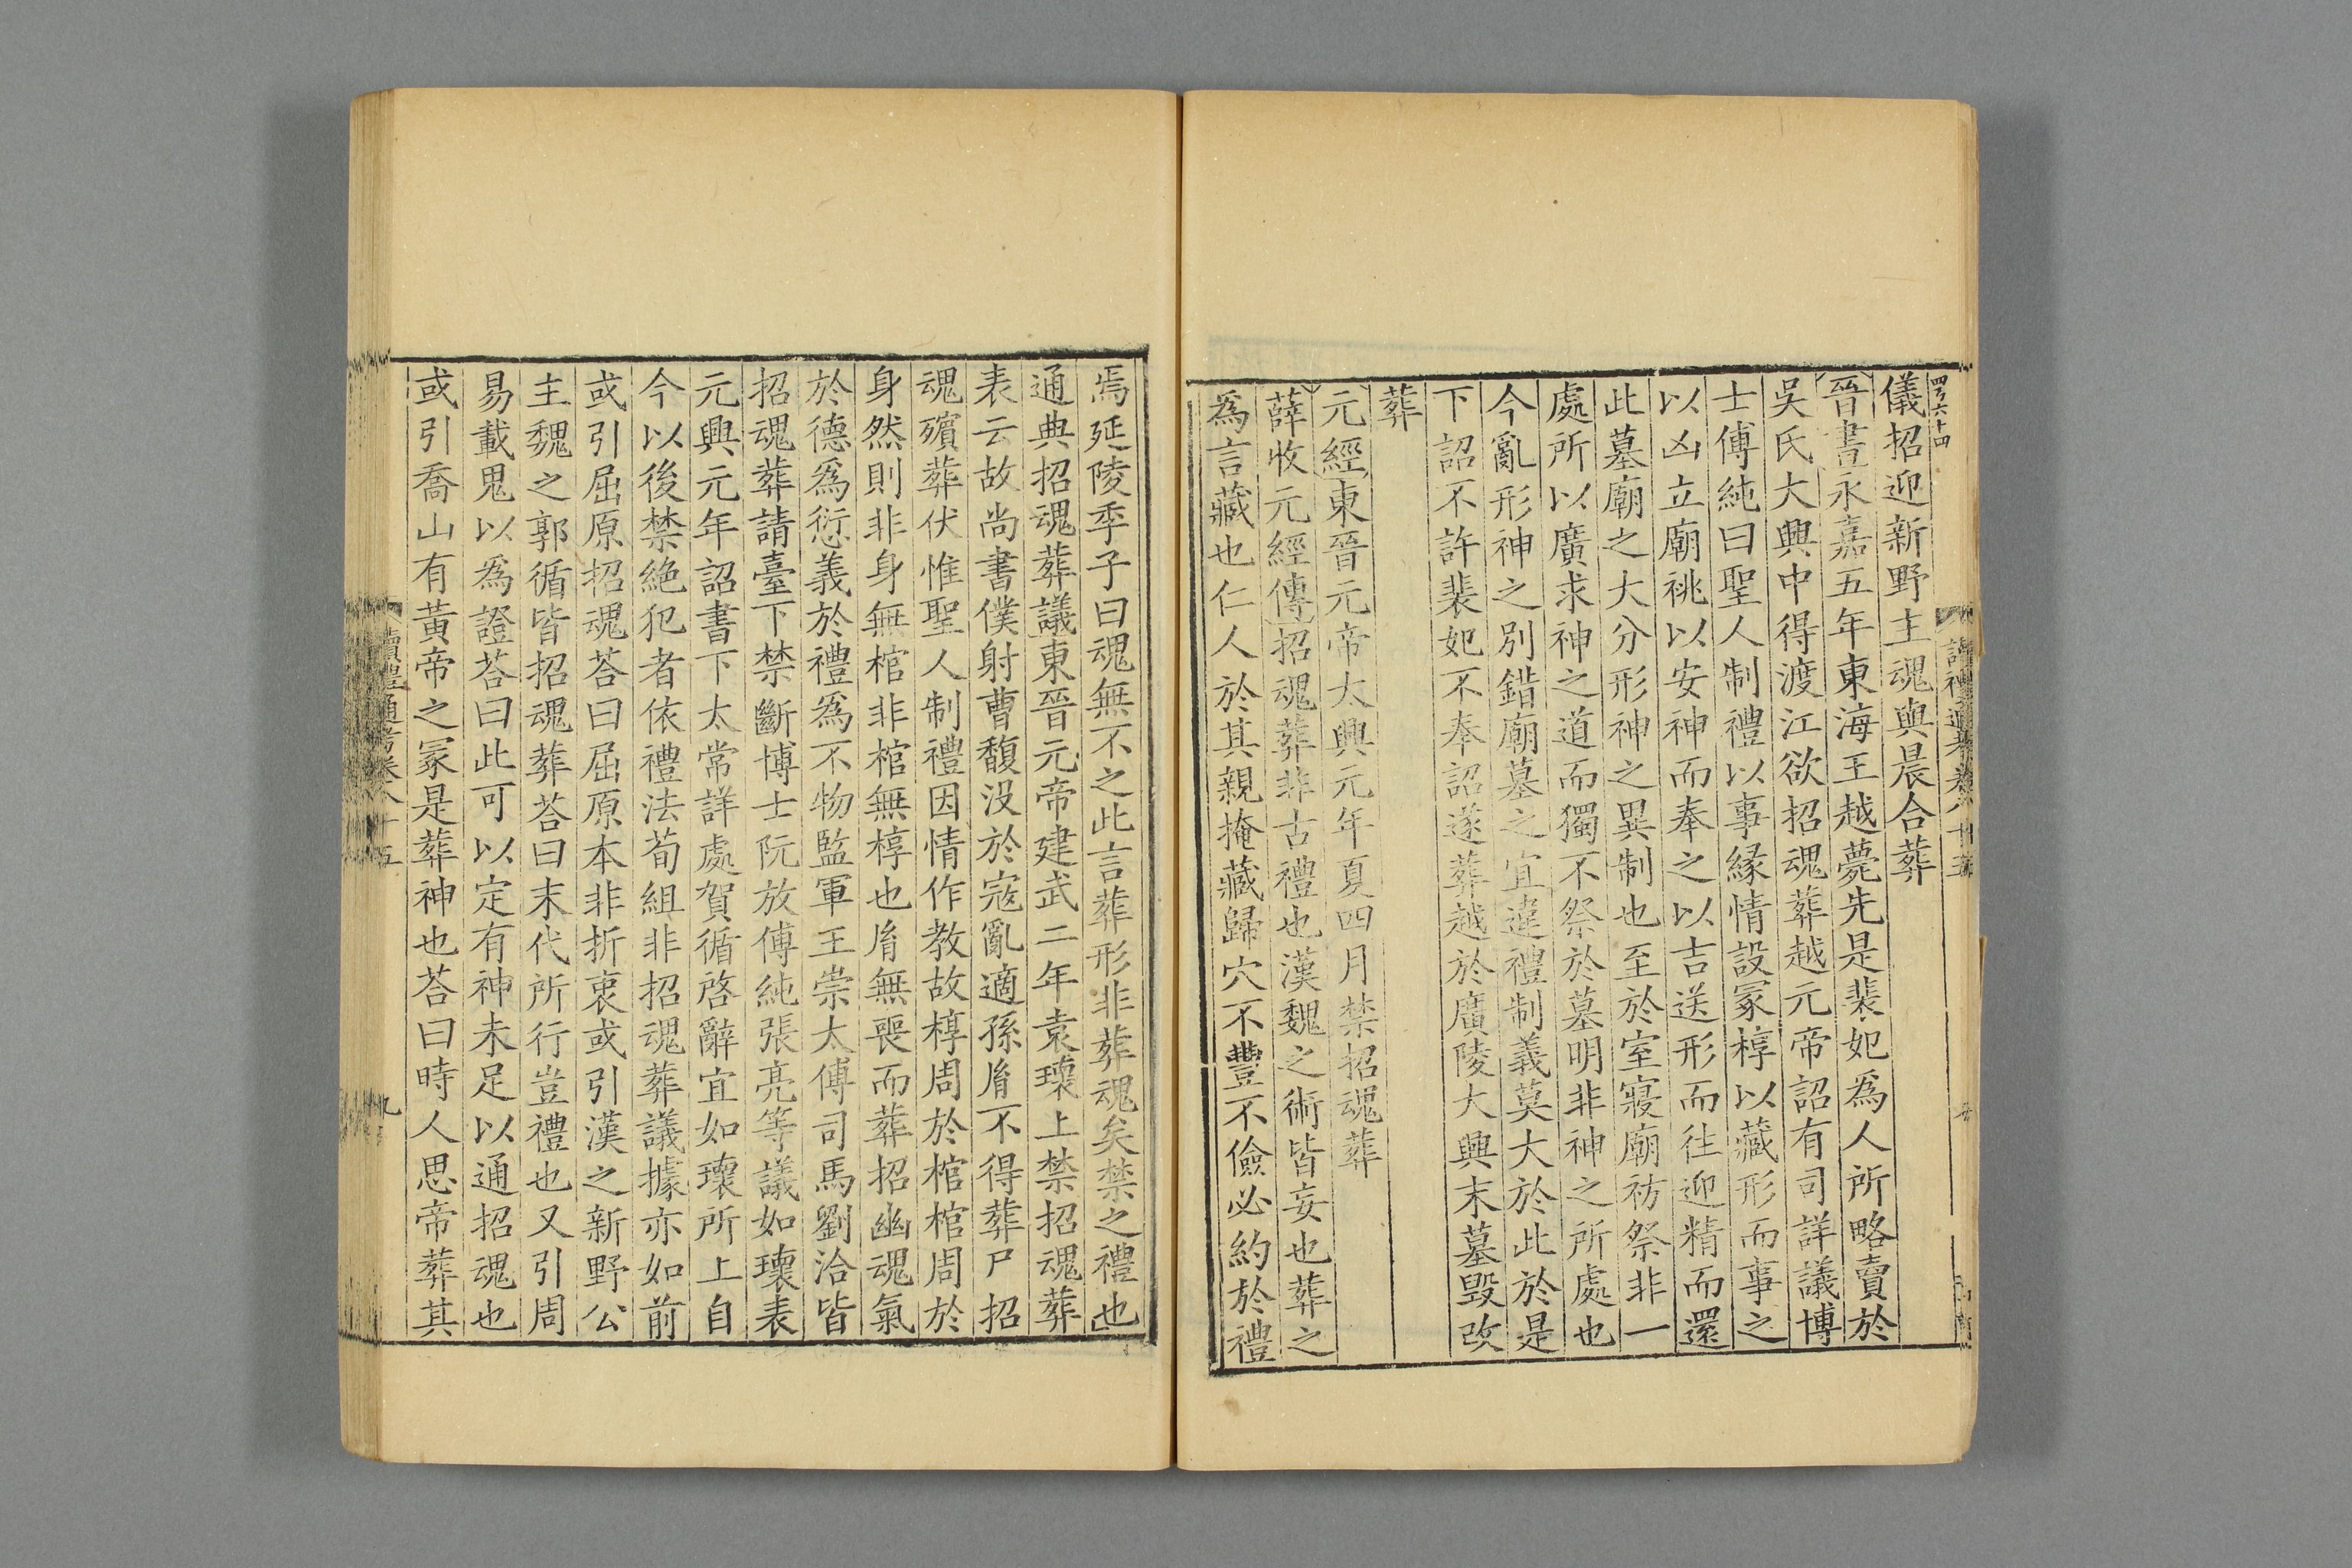 儀招迎新野主魂與晨合葬
晉書永嘉五年東海王越薨先是裴妃爲人所略賣於
吳氏大興中得渡江欲招魂葬越元帝詔有司詳議博
士傅純曰聖人制禮以事緣情設冢椁以藏形而事之
以凶立廟祧以安神而奉之以吉送形而往迎精而還
此墓廟之大分形神之異制也至於室寢廟祊祭非一
處所以廣求神之道而獨不祭於墓明非神之所處也
今亂形神之別錯廟墓之宜違禮制義莫大於此於是
下詔不許裴妃不奉詔遂葬越於廣陵大興末墓毀改
葬
元經東晉元帝太興元年夏四月禁招魂葬
薛收元經傳招魂葬非古禮也漢魏之術皆妄也葬之
爲言藏也仁人於其親掩藏歸穴不豐不儉必約於禮
焉延陵季子曰魂無不之此言葬形非葬魂矣禁之禮也
通典招魂葬議東晉元帝建武二年袁瓌上禁招魂葬
表云故尚書僕射曹馥没於寇亂適孫胤不得葬尸招
魂殯葬伏惟聖人制禮因情作教故椁周於棺棺周於
身然則非身無棺非棺無椁也胤無喪而葬招幽魂氣
於德爲愆義於禮爲不物監軍王崇太傅司馬劉洽皆
招魂葬請臺下禁斷博士阮放傅純張亮等議如瓌表
元興元年詔書下太常詳處賀循啓辭宜如瓌所上自
今以後禁絶犯者依禮法荀組非招魂葬議據亦如前
或引屈原招魂荅曰屈原本非折衷或引漢之新野公
主魏之郭循皆招魂葬荅曰末代所行豈禮也又引周
易載鬼以爲證荅曰此可以定有神未足以通招魂也
或引喬山有黃帝之冢是葬神也荅曰時人思帝葬其
讀禮通考卷八十五
九